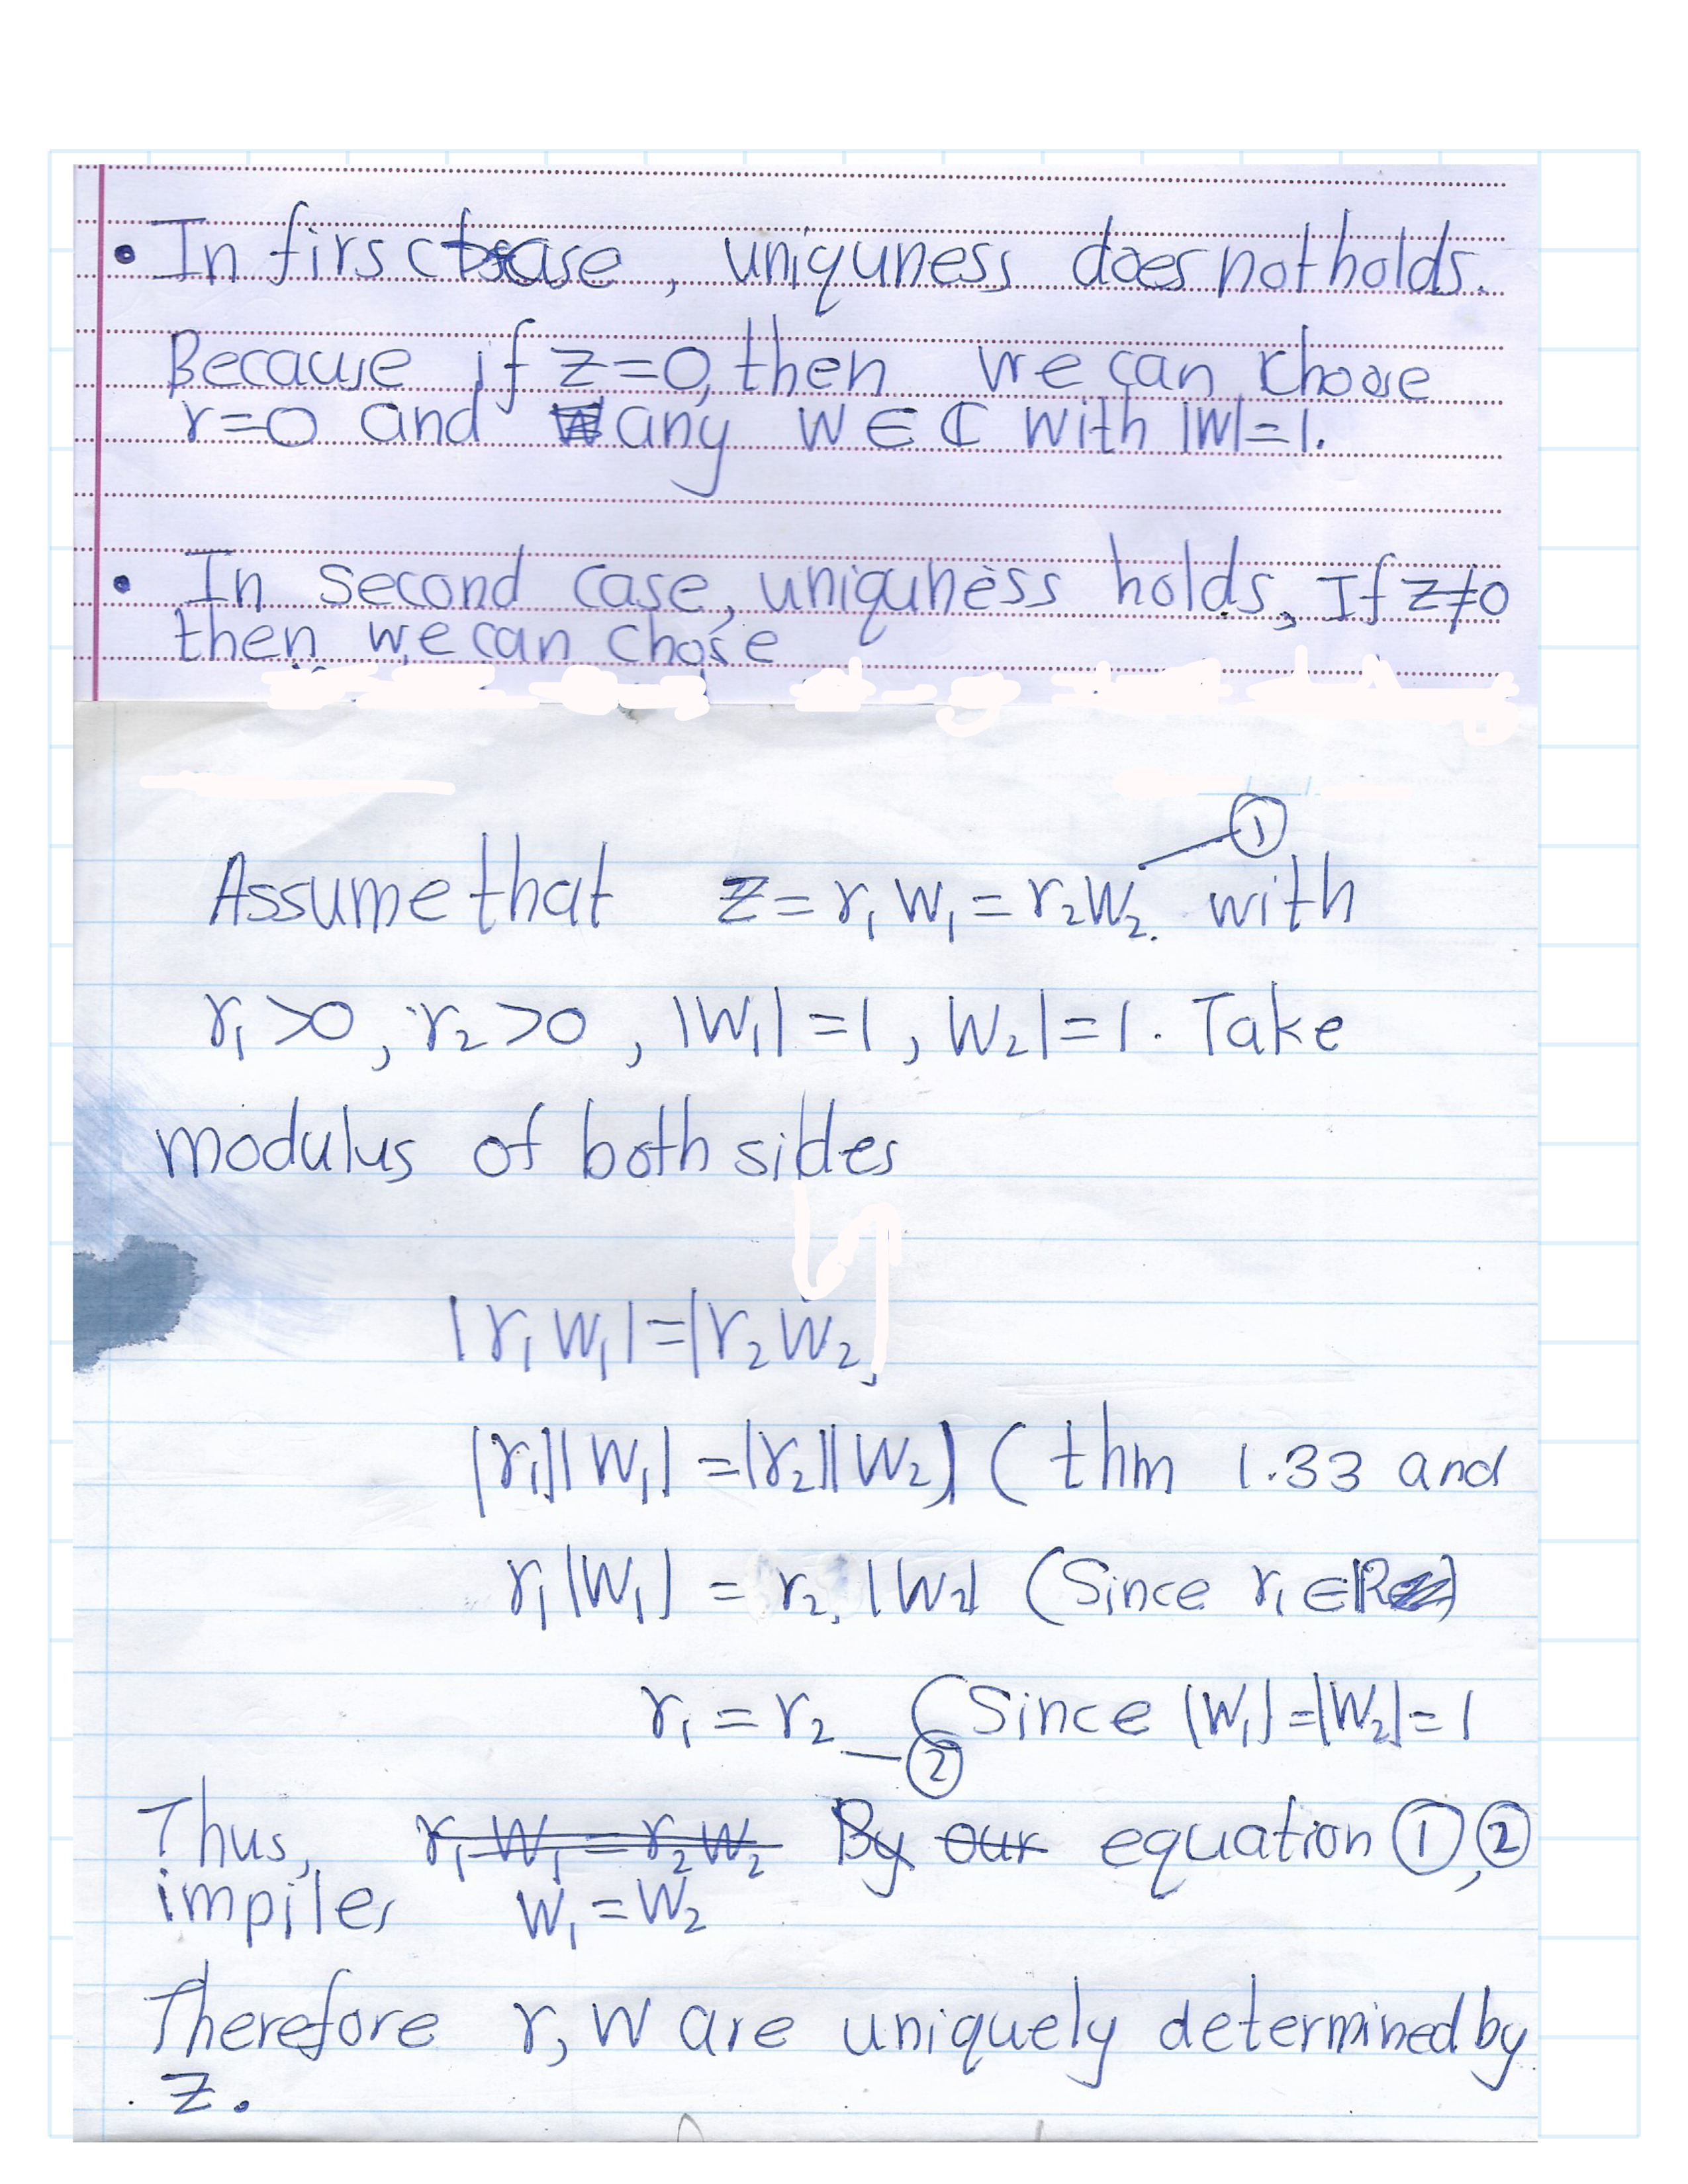 • In firs case, uniquness does not holds.
Because if z=0, then we can choose
r=0 and any w ∈ ℂ with |w|=1.
• In second case, uniquness holds, If z≠0
then we can chose
①
Assume that z = r₁ w₁ = r₂ w₂. with
r₁ >0, r₂ >0, |w₁| = 1, w₂| = 1. Take
modulus of both sides
|r₁ w₁| = |r₂ w₂
|r₁||w₁| = |r₂||w₂| ( thm 1.33 and
r₁ |w₁| = r₂ |w₂| (Since r₁ ∈ ℝ)
r₁ = r₂ — ② (Since |w₁| = |w₂| = 1
Thus, r₁ w₁ = r₂ w₂ By our equation ①,②
impiles w₁ = w₂
Therefore r, w are uniquely determined by
z.